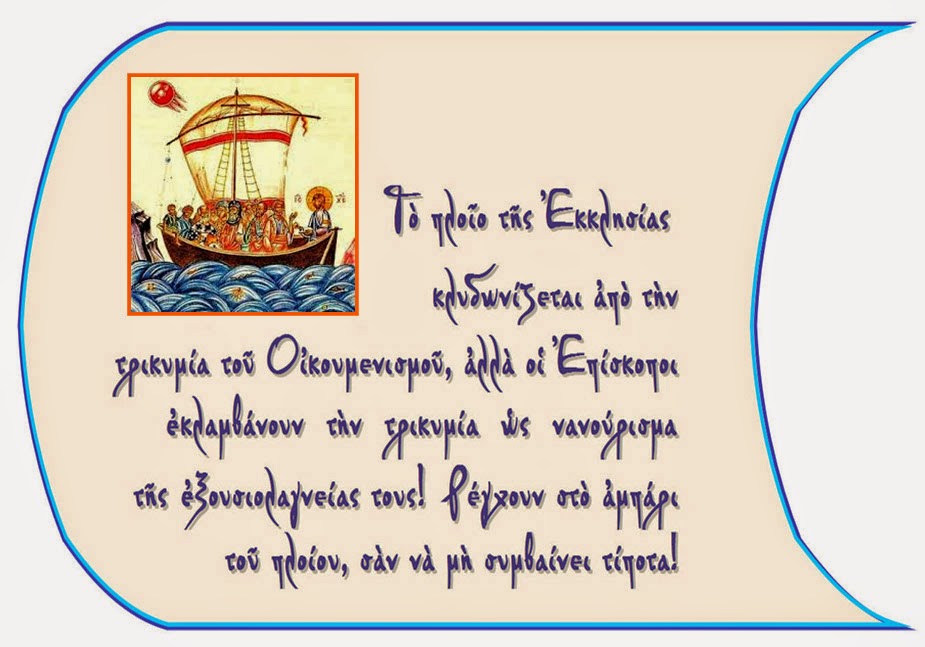 Τὸ πλοῖο τῆς Ἐκκλησίας
κλυδωνίζεται ἀπὸ τὴν
τρικυμία τοῦ Οἰκουμενισμοῦ, ἀλλὰ οἱ Ἐπίσκοποι
ἐκλαμβάνουν τὴν τρικυμία ὡς νανούρισμα
τῆς ἐξουσιολαγνείας τους! Ρέγχουν στὸ ἀμπάρι
τοῦ πλοίου, σὰν νὰ μὴ συμβαίνει τίποτα!